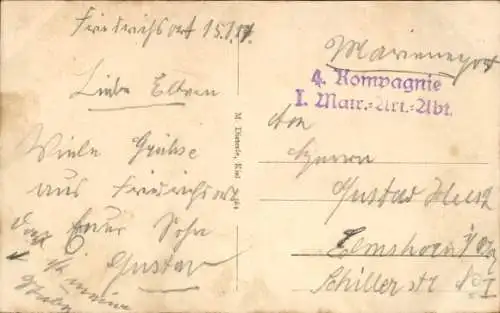 Friedrichsort 15.7.17.
Liebe Eltern
Viele Grüße
aus Friedrichsort
Euer Sohn
Gustav
ist meine
M. Dieterle, Kiel
Marinepost
4. Kompagnie
I. Matr.-Art.-Abt.
An
Herrn
Gustav
Elmshorn
Schiller